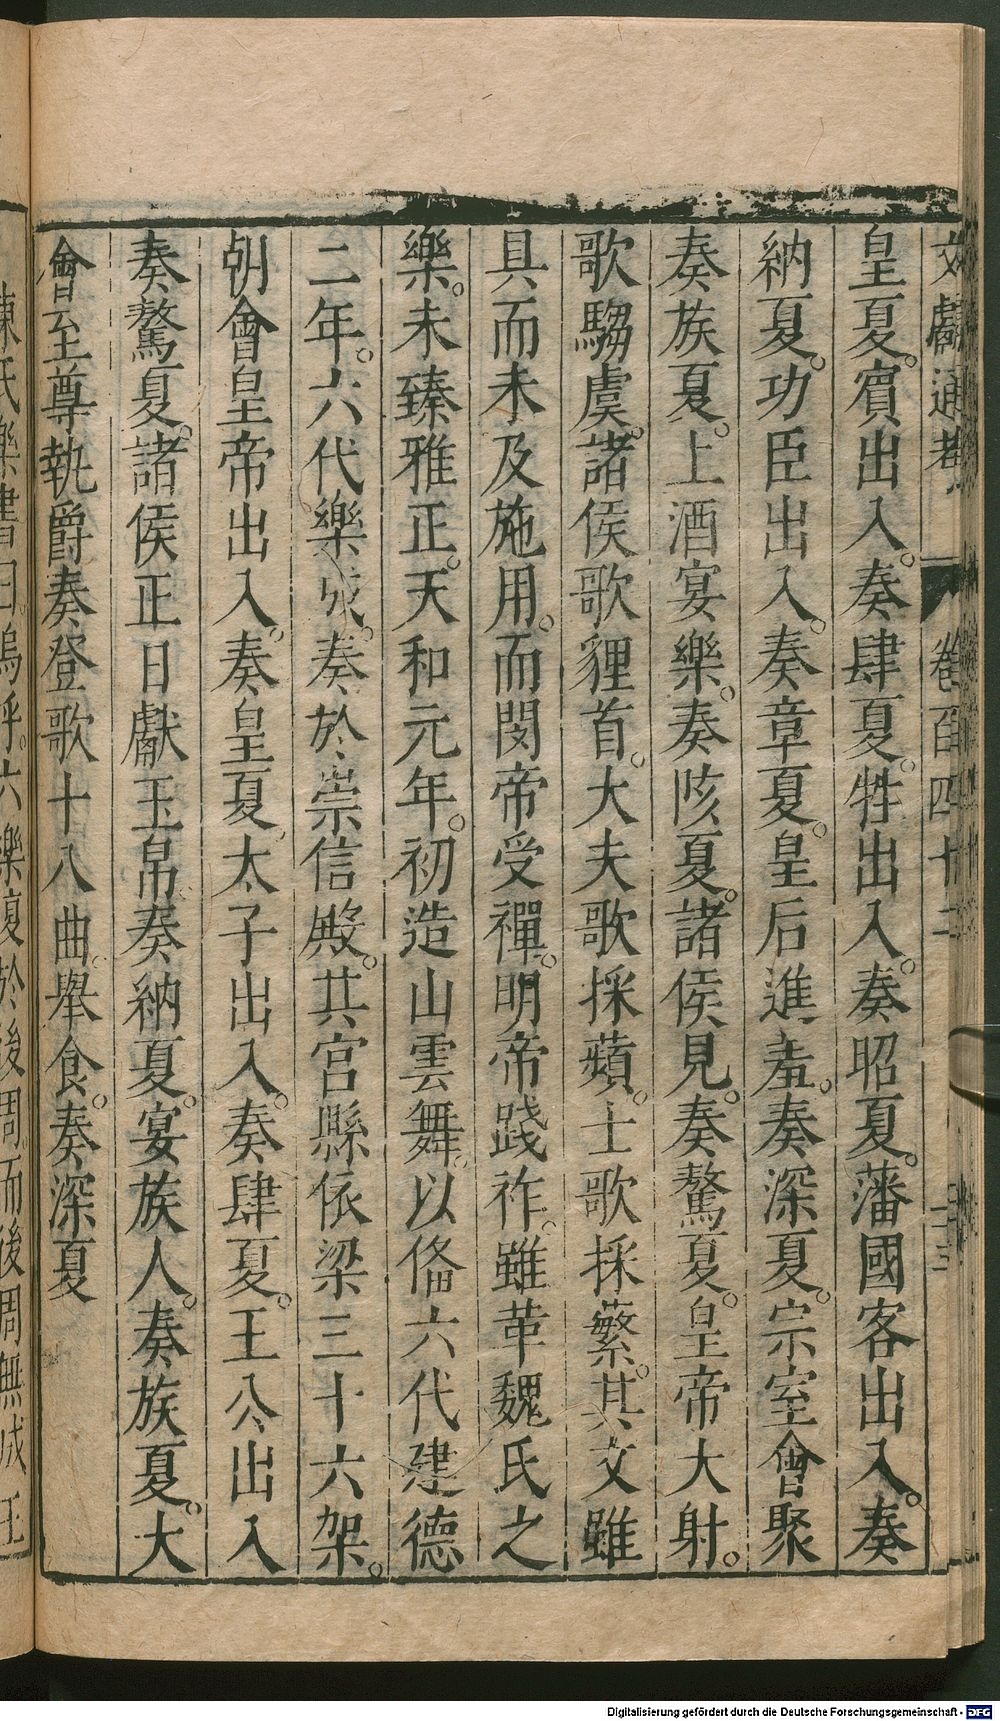 文獻通考 卷百四十二 二三
皇夏。賔出入。奏肆夏。牲出入。奏昭夏。藩國客出入。奏
納夏。功臣出入。奏章夏。皇后進羞。奏深夏。宗室會聚
奏族夏。上酒宴樂。奏陔夏。諸侯見。奏驁夏。皇帝大射。
歌騶虞。諸侯歌貍首。大夫歌採蘋。士歌採蘩。其文雖
具而未及施用。而閔帝受禪。明帝踐祚。雖革魏氏之
樂。未臻雅正。天和元年。初造山雲舞。以俻六代建德
二年。六代樂成。奏於崇信殿。其宫縣依梁三十六架。
朝會皇帝出入。奏皇夏。太子出入。奏肆夏。王公出入
奏驁夏。諸侯正日獻玉帛奏納夏。宴族人。奏族夏。大
會至尊執爵奏登歌十八曲。舉食。奏深夏
陳氏樂書曰。嗚呼。六樂復於後周。而後周無成王
Digitalisierung gefördert durch die Deutsche Forschungsgemeinschaft - DFG